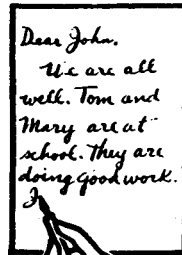 Dear John,
We are all
well. Tom and
Mary are at
school. They are
doing good work.
I